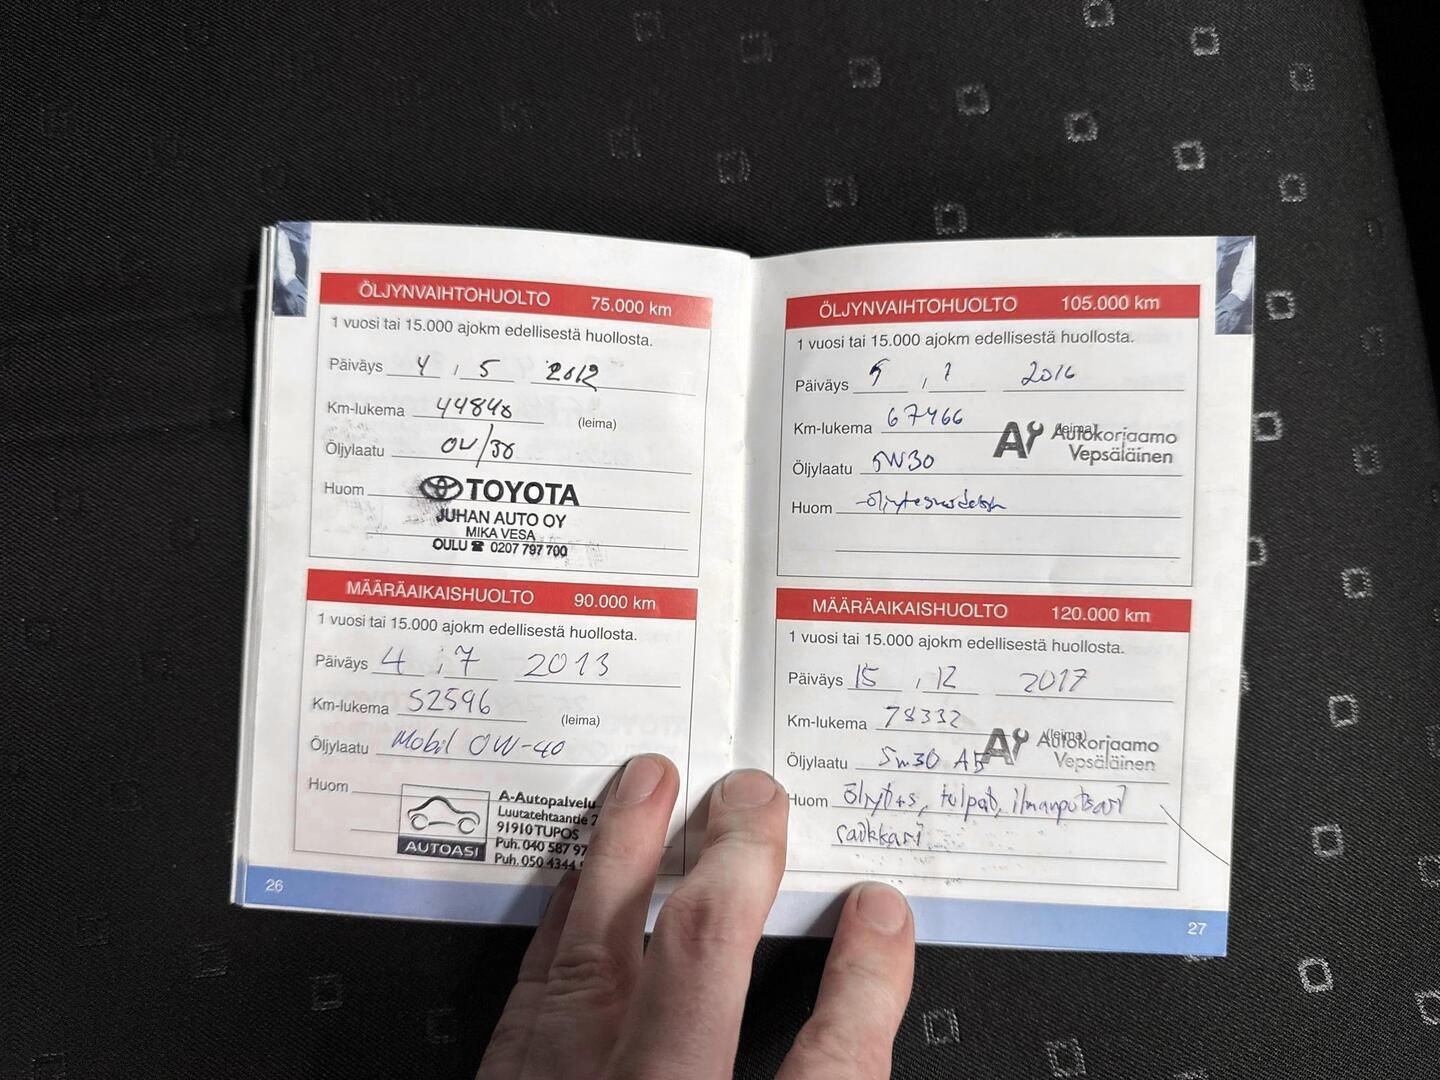 ÖLJYNVAIHTOHUOLTO 75.000 km
1 vuosi tai 15.000 ajokm edellisestä huollosta.
Päiväys 4 , 5 2012
Km-lukema 44848
(leima)
Öljylaatu 0W/30
Huom
TOYOTA
JUHAN AUTO OY
MIKA VESA
OULU ☎ 0207 797 700
MÄÄRÄAIKAISHUOLTO 90.000 km
1 vuosi tai 15.000 ajokm edellisestä huollosta.
Päiväys 4 , 7 2013
Km-lukema 52596
(leima)
Öljylaatu Mobil 0W-40
Huom
AUTOASI
A-Autopalvelu
Luutatehtaantie
91910 TUPOS
Puh. 040 587 97
Puh. 050 4344
26
ÖLJYNVAIHTOHUOLTO 105.000 km
1 vuosi tai 15.000 ajokm edellisestä huollosta.
Päiväys , 2016
Km-lukema 67466
(leima)
Autokorjaamo
Vepsäläinen
Öljylaatu 5W30
Huom
MÄÄRÄAIKAISHUOLTO 120.000 km
1 vuosi tai 15.000 ajokm edellisestä huollosta.
Päiväys 15 , 12 2017
Km-lukema 78332
(leima)
Autokorjaamo
Vepsäläinen
Öljylaatu 5W30 A5
Huom öljyt+s, tulpat, ilmanputsari
raikkari
27